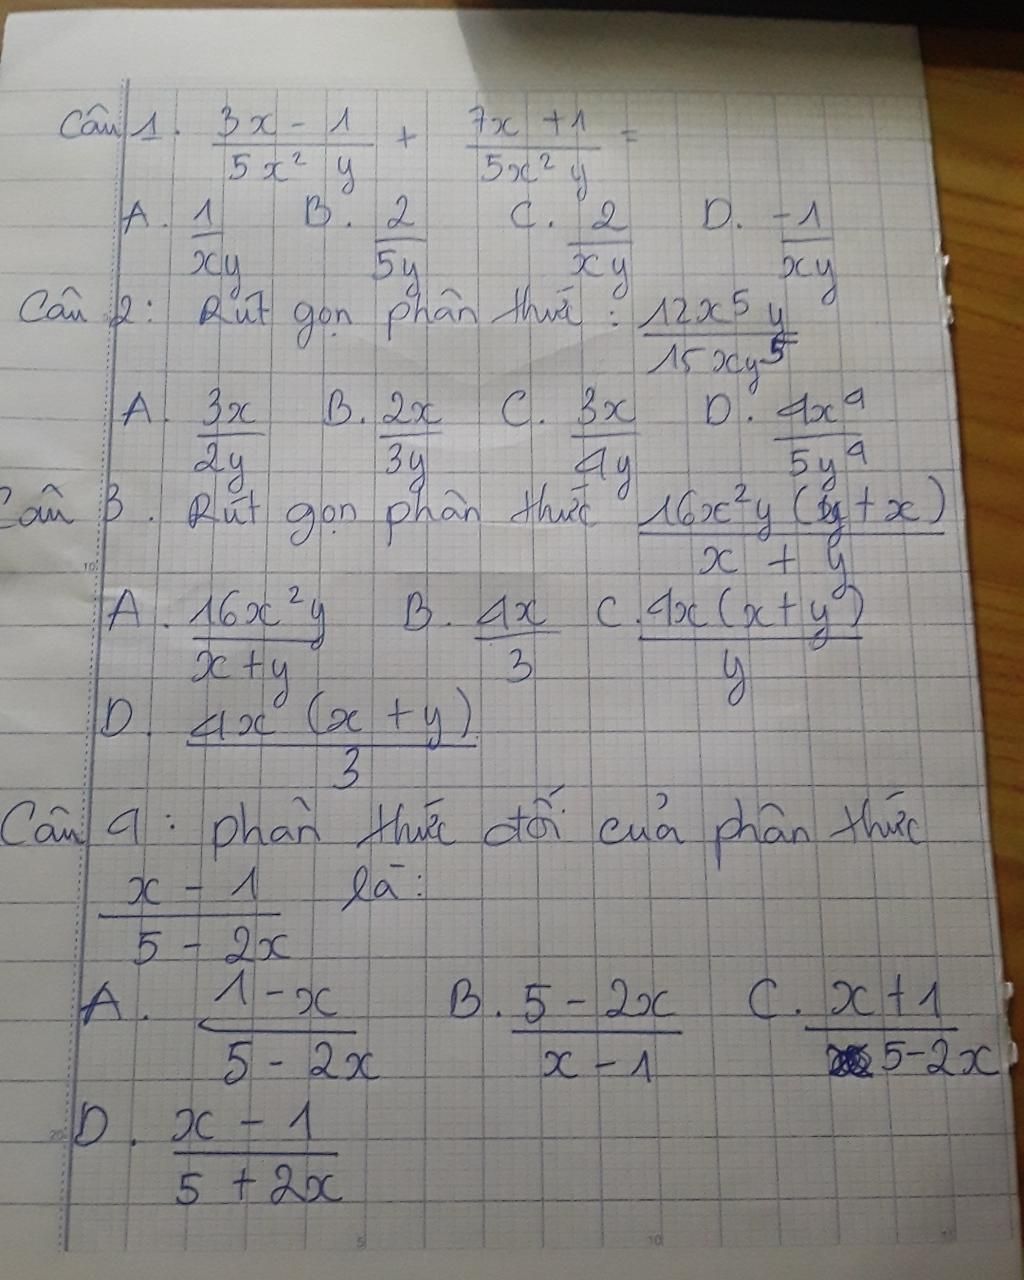 Câu 1. (3x - 1)/(5x² y) + (7x + 1)/(5x² y) =
A. 1/(xy) B. 2/(5y) C. 2/(xy) D. -1/(xy)
Câu 2: Rút gọn phân thức: (12x⁵y)/(15xy⁵)
A. 3x/(2y) B. 2x/(3y) C. 3x/(4y) D. 4x⁴/(5y⁴)
Câu 3. Rút gọn phân thức (16x²y(y + x))/(x + y)
10
A. (16x²y)/(x + y) B. 4x/3 C. (4x(x + y))/y
D. (4x (x + y))/3
Câu 4: phân thức đối của phân thức
(x - 1)/(5 - 2x) là:
A. (1 - x)/(5 - 2x) B. (5 - 2x)/(x - 1) C. (x + 1)/(5 - 2x)
20
D. (x - 1)/(5 + 2x)
5 10 15